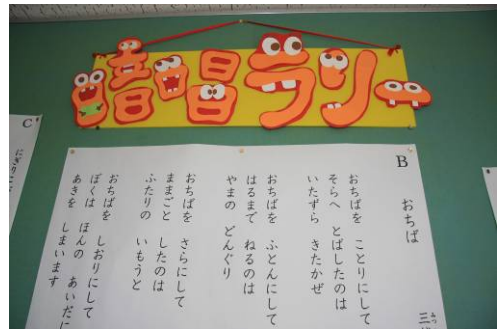 暗唱ラリー
B
おちば
三
おちばを ことりにして
そらへ とばしたのは
いたずら きたかぜ
おちばを ふとんにして
はるまで ねるのは
やまの どんぐり
おちばを さらにして
ままごと したのは
ふたりの いもうと
おちばを しおりにして
ぼくは ほんの あいだに
あきを しまいます
C